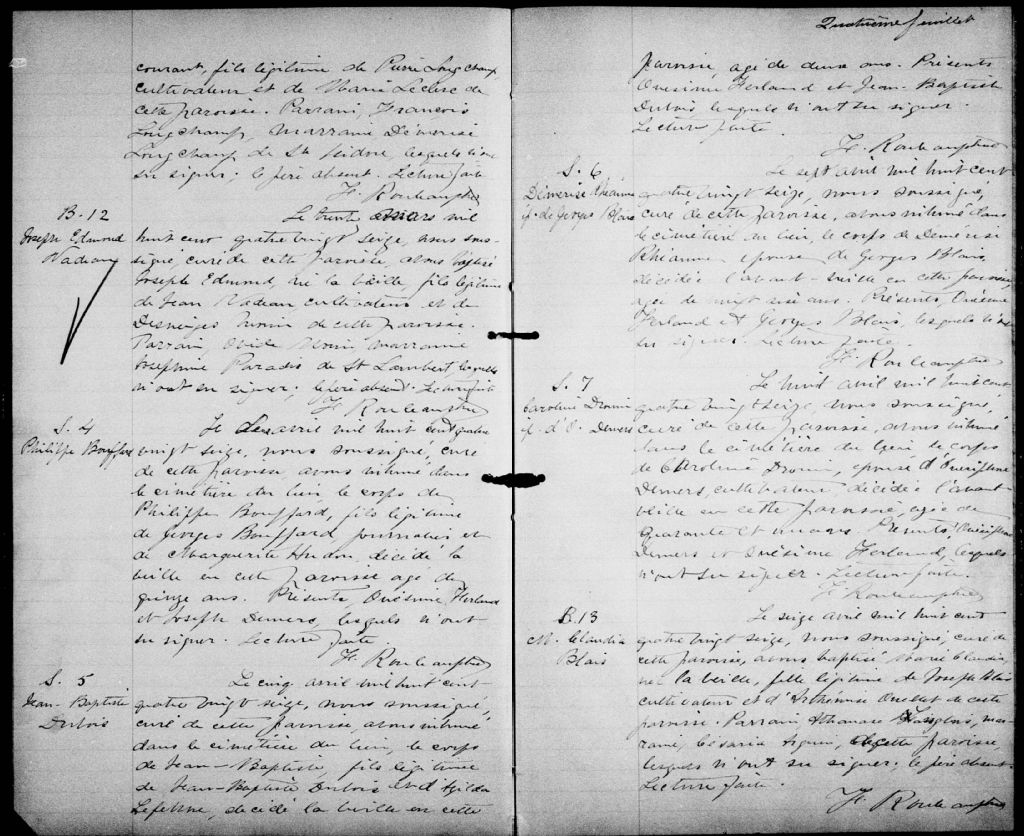 courant, fils légitime de Pierre Longchamp
cultivateur et de Marie Leclerc de
cette paroisse. Parrain, François
Longchamp, marraine Démerise
Longchamp de St Isidore, lesquels n'ont
su signer; le père absent. Lecture faite
F. Rouleau ptre
B. 12
Joseph Edmond
Nadeau
Le trente mars mil
huit cent quatre vingt seize, nous sous-
signé, curé de cette paroisse, avons baptisé
Joseph Edmond, né la veille, fils légitime
de Jean Nadeau cultivateur et de
Desneiges de cette paroisse.
Parrain Ovide marraine
Joséphine Paradis de St Lambert lesquels
n'ont su signer; le père absent. Lecture faite
F. Rouleau ptre
S. 4
Philippe Bouffard
Le avril mil huit cent quatre
vingt seize, nous soussigné, curé
de cette paroisse avons inhumé dans
le cimetière du lieu, le corps de
Philippe Bouffard, fils légitime
de Georges Bouffard journalier et
de Marguerite Hudon décédé la
veille en cette paroisse agé de
quinze ans. Présents, Onésime Ferland
et Joseph Demers, lesquels n'ont
su signer. Lecture faite.
F. Rouleau ptre
S. 5
Jean-Baptiste
Dubois
Le cinq avril mil huit cent
quatre vingt seize, nous soussigné,
curé de cette paroisse avons inhumé
dans le cimetière du lieu, le corps
de Jean-Baptiste, fils légitime
de Jean-Baptiste Dubois et d'
Lefebvre, décédé la veille en cette
Quatrième feuillet
paroisse, agé de deux ans. Présents
Onésime Ferland et Jean-Baptiste
Dubois, lesquels n'ont su signer.
Lecture faite.
F. Rouleau ptre
S. 6
Démerise Rhéaume
é. de Georges Blais
Le sept avril mil huit cent
quatre vingt seize, nous soussigné,
curé de cette paroisse, avons inhumé dans
le cimetière du lieu, le corps de Démérise
Rhéaume épouse de Georges Blais,
décédée l'avant-veille en cette paroisse,
agée de vingt six ans. Présents, Onésime
Ferland et Georges Blais, lesquels n'ont
su signer. Lecture faite.
F. Rouleau ptre
S. 7
Caroline Drouin
é. d'O. Demers
Le huit avril mil huit cent
quatre vingt seize, nous soussigné,
curé de cette paroisse, avons inhumé
dans le cimetière du lieu le corps
de Caroline Drouin, épouse d'Onésiphore
Demers, cultivateur, décédée l'avant-
veille en cette paroisse, agée de
quarante et ans. Présents, Onésiphore
Demers et Onésime Ferland, lesquels
n'ont su signer. Lecture faite.
F. Rouleau ptre
B. 13
M. Claudia
Blais
Le seize avril mil huit cent
quatre vingt seize, nous soussigné, curé de
cette paroisse, avons baptisé Marie Claudia,
née la veille, fille légitime de Joseph Blais
cultivateur et d'Arthémise Ouellet de cette
paroisse. Parrain Athanase mar-
raine, Césarie de cette paroisse,
lesquels n'ont su signer; le père absent.
Lecture faite.
F. Rouleau ptre